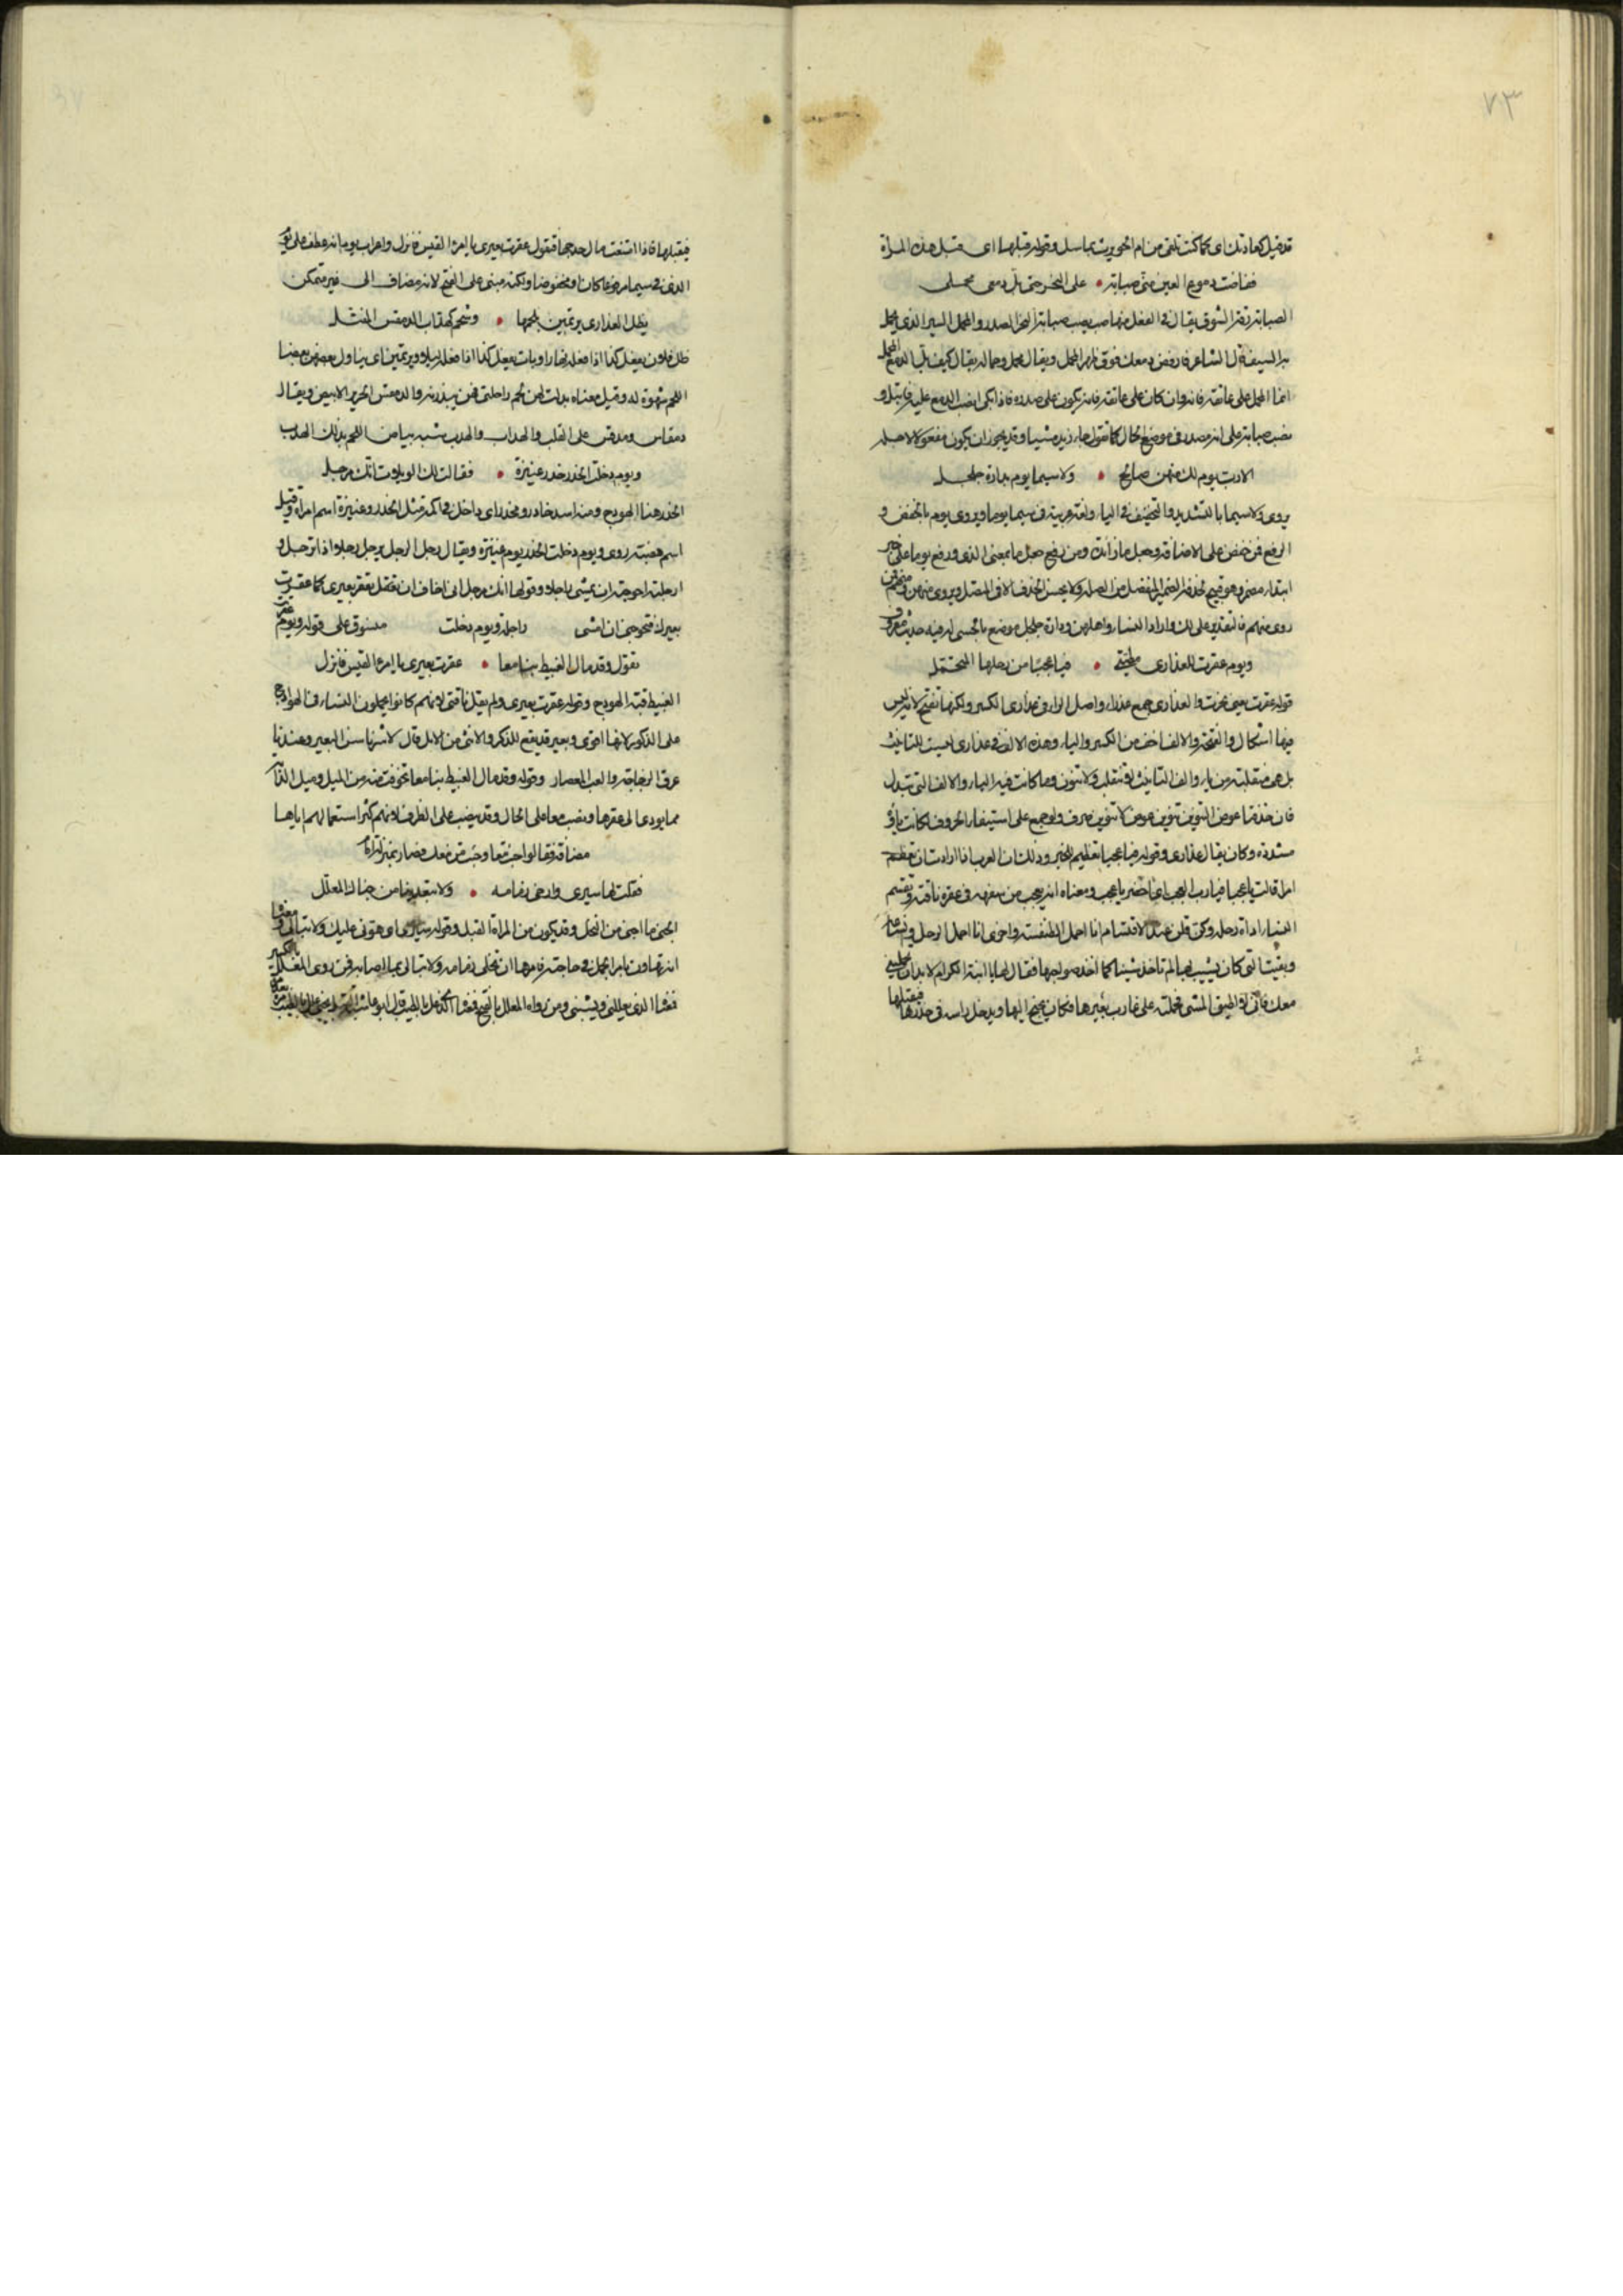 ٧٣
قد قيل كعادتك اي كما كنت تلقى من ام الحويرث بماسل وقوله قبلها اي قبل هذه المرأة
ففاضت دموع العين مني صبابة • على النحر حتى بل دمعي محملي
الصبابة رقة الشوق يقال في الفعل منها صب يصب صبابة النحر الصدر والمحمل السير الذي يحمل
به السيف قال الشاعر فارفض دمعك فوق ظهر المحمل ويقال محمل وحمالة يقال كيف بل الدمع المحمل
انما المحمل على عاتقه فانه وان كان على عاتقه فانه يكون على صدره فاذا بكى انصب الدمع عليه فابتل و
نصب صبابة على انه مصدر في موضع الحال كما تقول جاء زيد مشيا وقد يجوز ان يكون مفعولا لاجله
الا رب يوم لك منهن صالح • ولا سيما يوم بدارة جلجل
يروى ولا سيما بالتشديد والتخفيف في الياء ولغة غريبة في سيما يوما ويروى يوم بالخفض و
الرفع فمن خفض على الاضافة وجعل ما زائدة ومن رفع جعل ما بمعنى الذي ورفع يوما على خبر
ابتداء مضمر وهو قبيح لحذف الضمير المنفصل من الصلة ولا يحسن الحذف الا في المتصل ويروى منهن ومنهم فمن
روى منهم فالتقدير على لك واراد النساء واهلهن ودارة جلجل موضع بالحمى له فيه حديث معروف
ويوم عقرت للعذارى مطيتي • فيا عجبا من رحلها المتحمل
قوله عقرت يعني نحرت والعذارى جمع عذراء واصل الراء في عذارى الكسر ولكنها تفتح لانه ليس
فيها اشكال والفتحة والالف اخف من الكسر والياء وهذه الالف في عذارى ليست للتانيث
بل هي منقلبة من ياء والف التانيث لا تنقلب ولا تنون وما كانت فيه الياء والالف التي تبدل
فان حذفتها عوض التنوين تنوين عوض لا تنوين صرف ولو جمع على استيفاء الحروف لكانت ياؤه
مشددة وكان يقال عذاري وقوله فيا عجبا تعظيم للخبر وذلك ان العرب اذا ارادت ان تعظم
امرا قالت يا عجبا فيا رب العجب اي احضر يا عجب ومعناه انه يعجب من سفهه في عقره ناقته وتقسم
النساء اداة رحله وكن قلن عند الاقتسام انا احمل الطنفسة واخرى انا احمل الرحل ونساءه
وبقيت التي كان يشبب بها لم تاخذ شيئا كما اخذ صواحبها فقال لها يا ابنة الكرام لا بد ان تحمليني
معك فاني لا اطيق المشي فحملته على غارب بعيرها فكان يجنح اليها ويدخل راسه في خدرها فيقبلها
فيقبلها فاذا امتنعت مال حدجها فتقول عقرت بعيري يا امرأ القيس فانزل واعراب يوما انه عطف على يوم
الذي في سيما مرفوعا كان او مخفوضا ولكنه مبني على الفتح لانه مضاف الى غير متمكن
يظل العذارى يرتمين بلحمها • وشحم كهداب الدمقس المفتل
ظل فلان يفعل كذا اذا فعله نهارا وبات يفعل كذا اذا فعله ليلا ويرتمين اي يناول بعضهن بعضا
اللحم شهوة له وقيل معناه بدلت لهن لحم راحلتي فهن يبذرنه والدمقس الحرير الابيض ويقال
دمقاس ومدقس على القلب والهداب والهدب شبه بياض اللحم بذلك الهدب
ويوم دخلت الخدر خدر عنيزة • فقالت لك الويلات انك مرجلي
الخدر هنا الهودج ومنه اسد خادر ومخدر اي داخل في اكمة مثل الخدر وعنيزة اسم امرأة وقيل
اسم هضبة روى ويوم دخلت الخدر يوم عنيزة ويقال رجل الرجل يرجل رجلا اذا ترجل و
ارجلته احوجته ان يمشي راجلا وقولها انك مرجلي اني اخاف ان تفتعل تعقر بعيري كما عقرت
بعيرك فتحوجني ان امشي راجلة ويوم دخلت منسوق على قوله ويوم عقرت
تقول وقد مال الغبيط بنا معا • عقرت بعيري يا امرأ القيس فانزل
الغبيط قتبة الهودج وقوله عقرت بعيري ولم يقل ناقتي لانهم كانوا يحملون النساء في الهوادج
على الذكور لانها اقوى وبعير قد يقع للذكر والانثى من الابل قال لا تشربا لبن البعير وعندنا
عرق الزجاجة والعب المعصار وقوله وقد مال الغبيط بنا معا تخوفت منه من الميل وميل القتب
مما يودي الى عقرها ونصب معا على الحال وقد ينصب على الظرف لانهم كثر استعمالهم اياها
مضافة فقالوا جئت معا وجئت من معك فصار بمنزلة امام
فقلت لها سيري وارخي زمامه • ولا تبعديني من جناك المعلل
الجنى ما اجني من النخل وقد يكون من المرأة القبل وقوله سيري اي هوني عليك ولا تبالي ومعنى ما
انه تهاون بامر الجمل في حاجته فامرها ان تخلي زمامه ولا تبالي بما اصابه فمن روى المعلل بالكسر